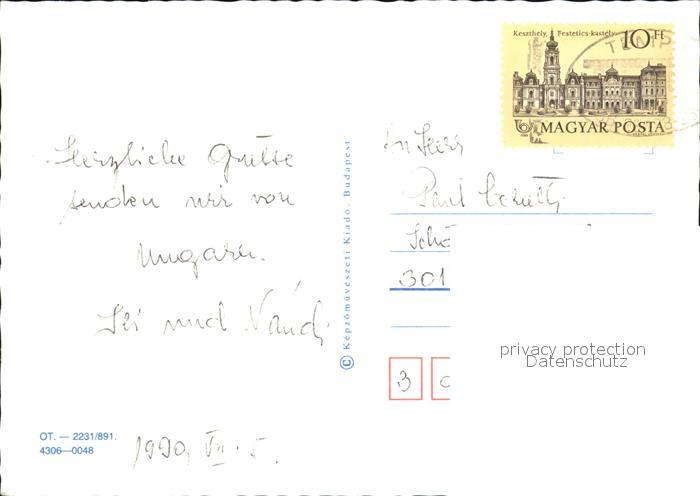 Keszthely, Festetics-kastély
10 Ft
MAGYAR POSTA
Herzliche Grüsse
senden wir von
Ungarn.
und Nándi
1990. VII. 5.
OT. — 2231/891.
4306—0048
© Képzőművészeti Kiadó, Budapest
An Herr
Paul
301
3
privacy protection
Datenschutz